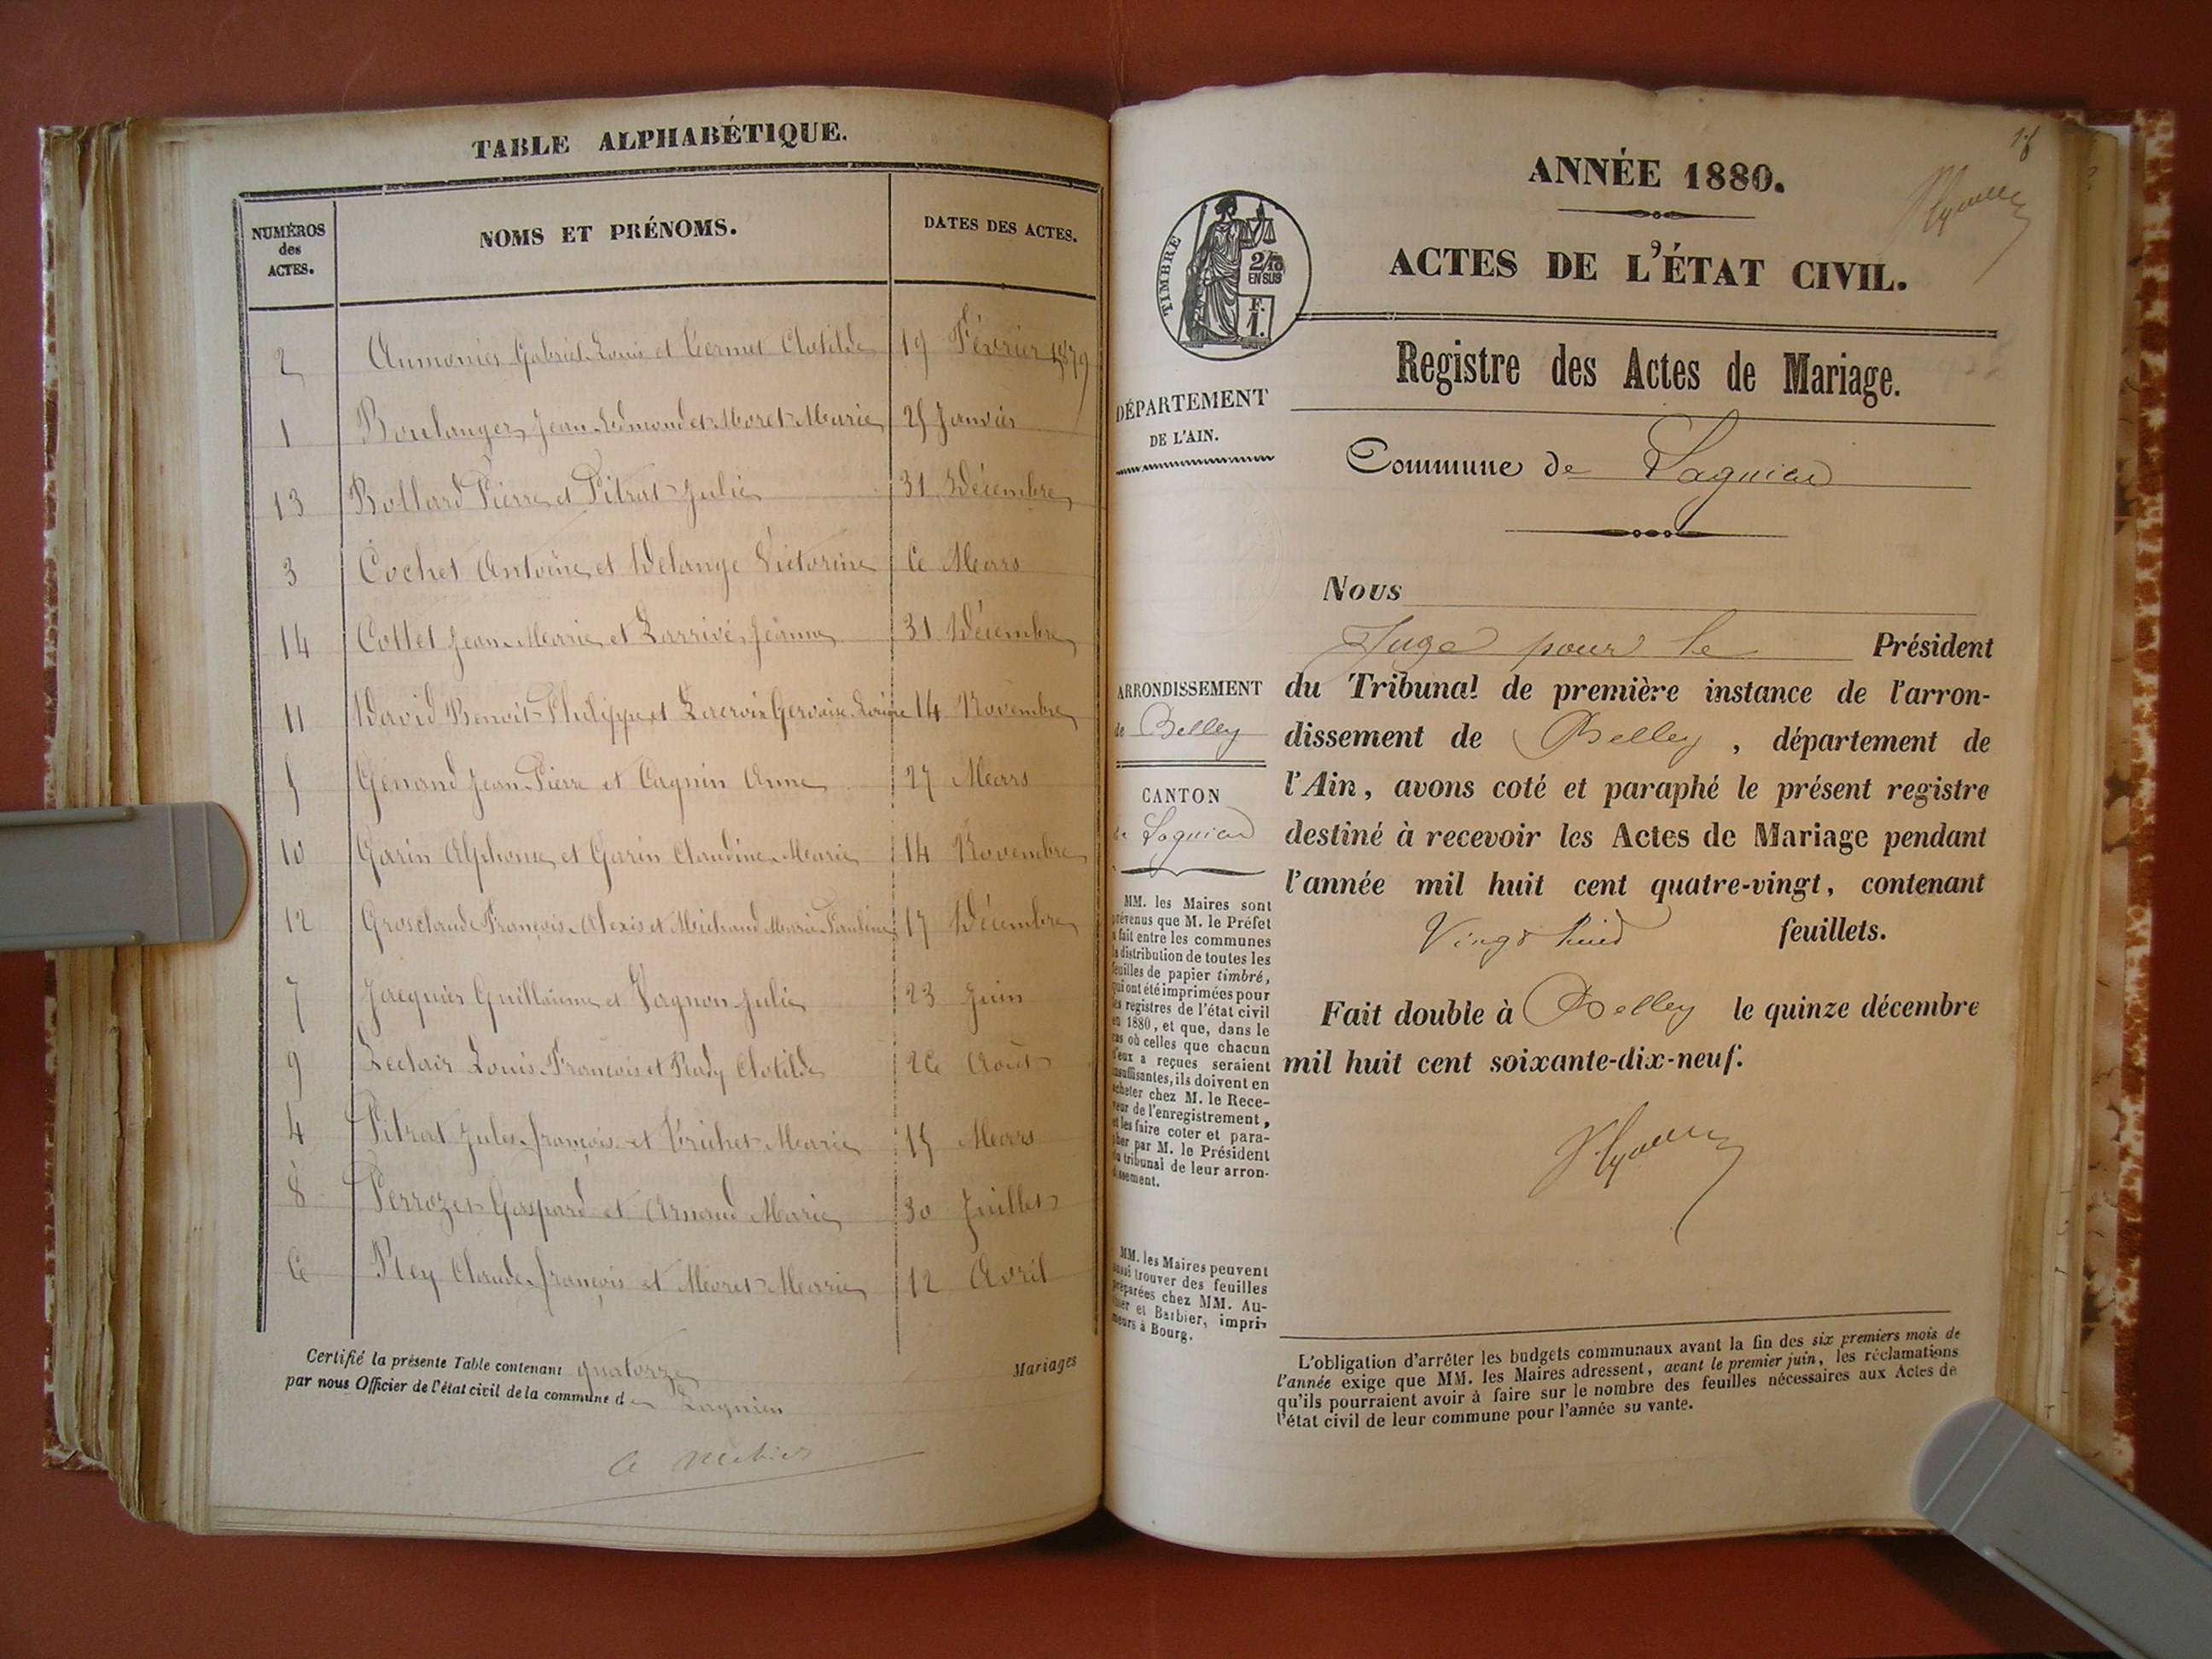 TABLE ALPHABÉTIQUE.
NUMÉROS des ACTES. NOMS ET PRÉNOMS. DATES DES ACTES.
2 Aumonier Gabriel Louis et Vermet Clotilde 19 Février 1879
1 Boulanger Jean Edmond et Moret Marie 25 Janvier
13 Bollard Pierre et Pitrat Julie 31 Décembre
3 Cochet Antoine et Delange Victorine 6 Mars
14 Collet Jean Marie et Larrivé Jeanne 31 Décembre
11 David Benoit Philippe et Lacroix Gervaise 14 Novembre
5 Génand Jean Pierre et Cagnin Anne 27 Mars
10 Garin Alphonse et Garin Claudine Marie 14 Novembre
12 Grosclaude François Alexis et Michaud Marie Pauline 17 Décembre
7 Jacquier Guillaume et Vagnon Julie 23 Juin
9 Leclair Louis François et Rudy Clotilde 26 Août
4 Pitrat Jules françois et Marie 15 Mars
8 Perrozet Gaspard et Arnaud Marie 30 Juillet
6 Rey Claude françois et Moret Marie 12 Avril
Certifié la présente Table contenant quatorze Mariages
par nous Officier de l'état civil de la commune de Lagnieu
18
ANNÉE 1880.
ACTES DE L'ÉTAT CIVIL.
TIMBRE
2/10 EN SUS
F. 1.
Registre des Actes de Mariage.
DÉPARTEMENT
DE L'AIN.
Commune de Lagnieu
Nous
Juge pour le Président
du Tribunal de première instance de l'arron-
dissement de Belley, département de
l'Ain, avons coté et paraphé le présent registre
destiné à recevoir les Actes de Mariage pendant
l'année mil huit cent quatre-vingt, contenant
Vingt huit feuillets.
Fait double à Belley le quinze décembre
mil huit cent soixante-dix-neuf.
ARRONDISSEMENT
de Belley
CANTON
de Lagnieu
MM. les Maires sont
prévenus que M. le Préfet
a fait entre les communes
la distribution de toutes les
feuilles de papier timbré,
qui ont été imprimées pour
les registres de l'état civil
en 1880, et que, dans le
cas où celles que chacun
d'eux a reçues seraient
insuffisantes, ils doivent en
acheter chez M. le Rece-
veur de l'enregistrement,
et les faire coter et para-
pher par M. le Président
du tribunal de leur arron-
dissement.
MM. les Maires peuvent
aussi trouver des feuilles
préparées chez MM. Au-
thier et Barbier, impri-
meurs à Bourg.
L'obligation d'arrêter les budgets communaux avant la fin des six premiers mois de
l'année exige que MM. les Maires adressent, avant le premier juin, les réclamations
qu'ils pourraient avoir à faire sur le nombre des feuilles nécessaires aux Actes de
l'état civil de leur commune pour l'année su vante.